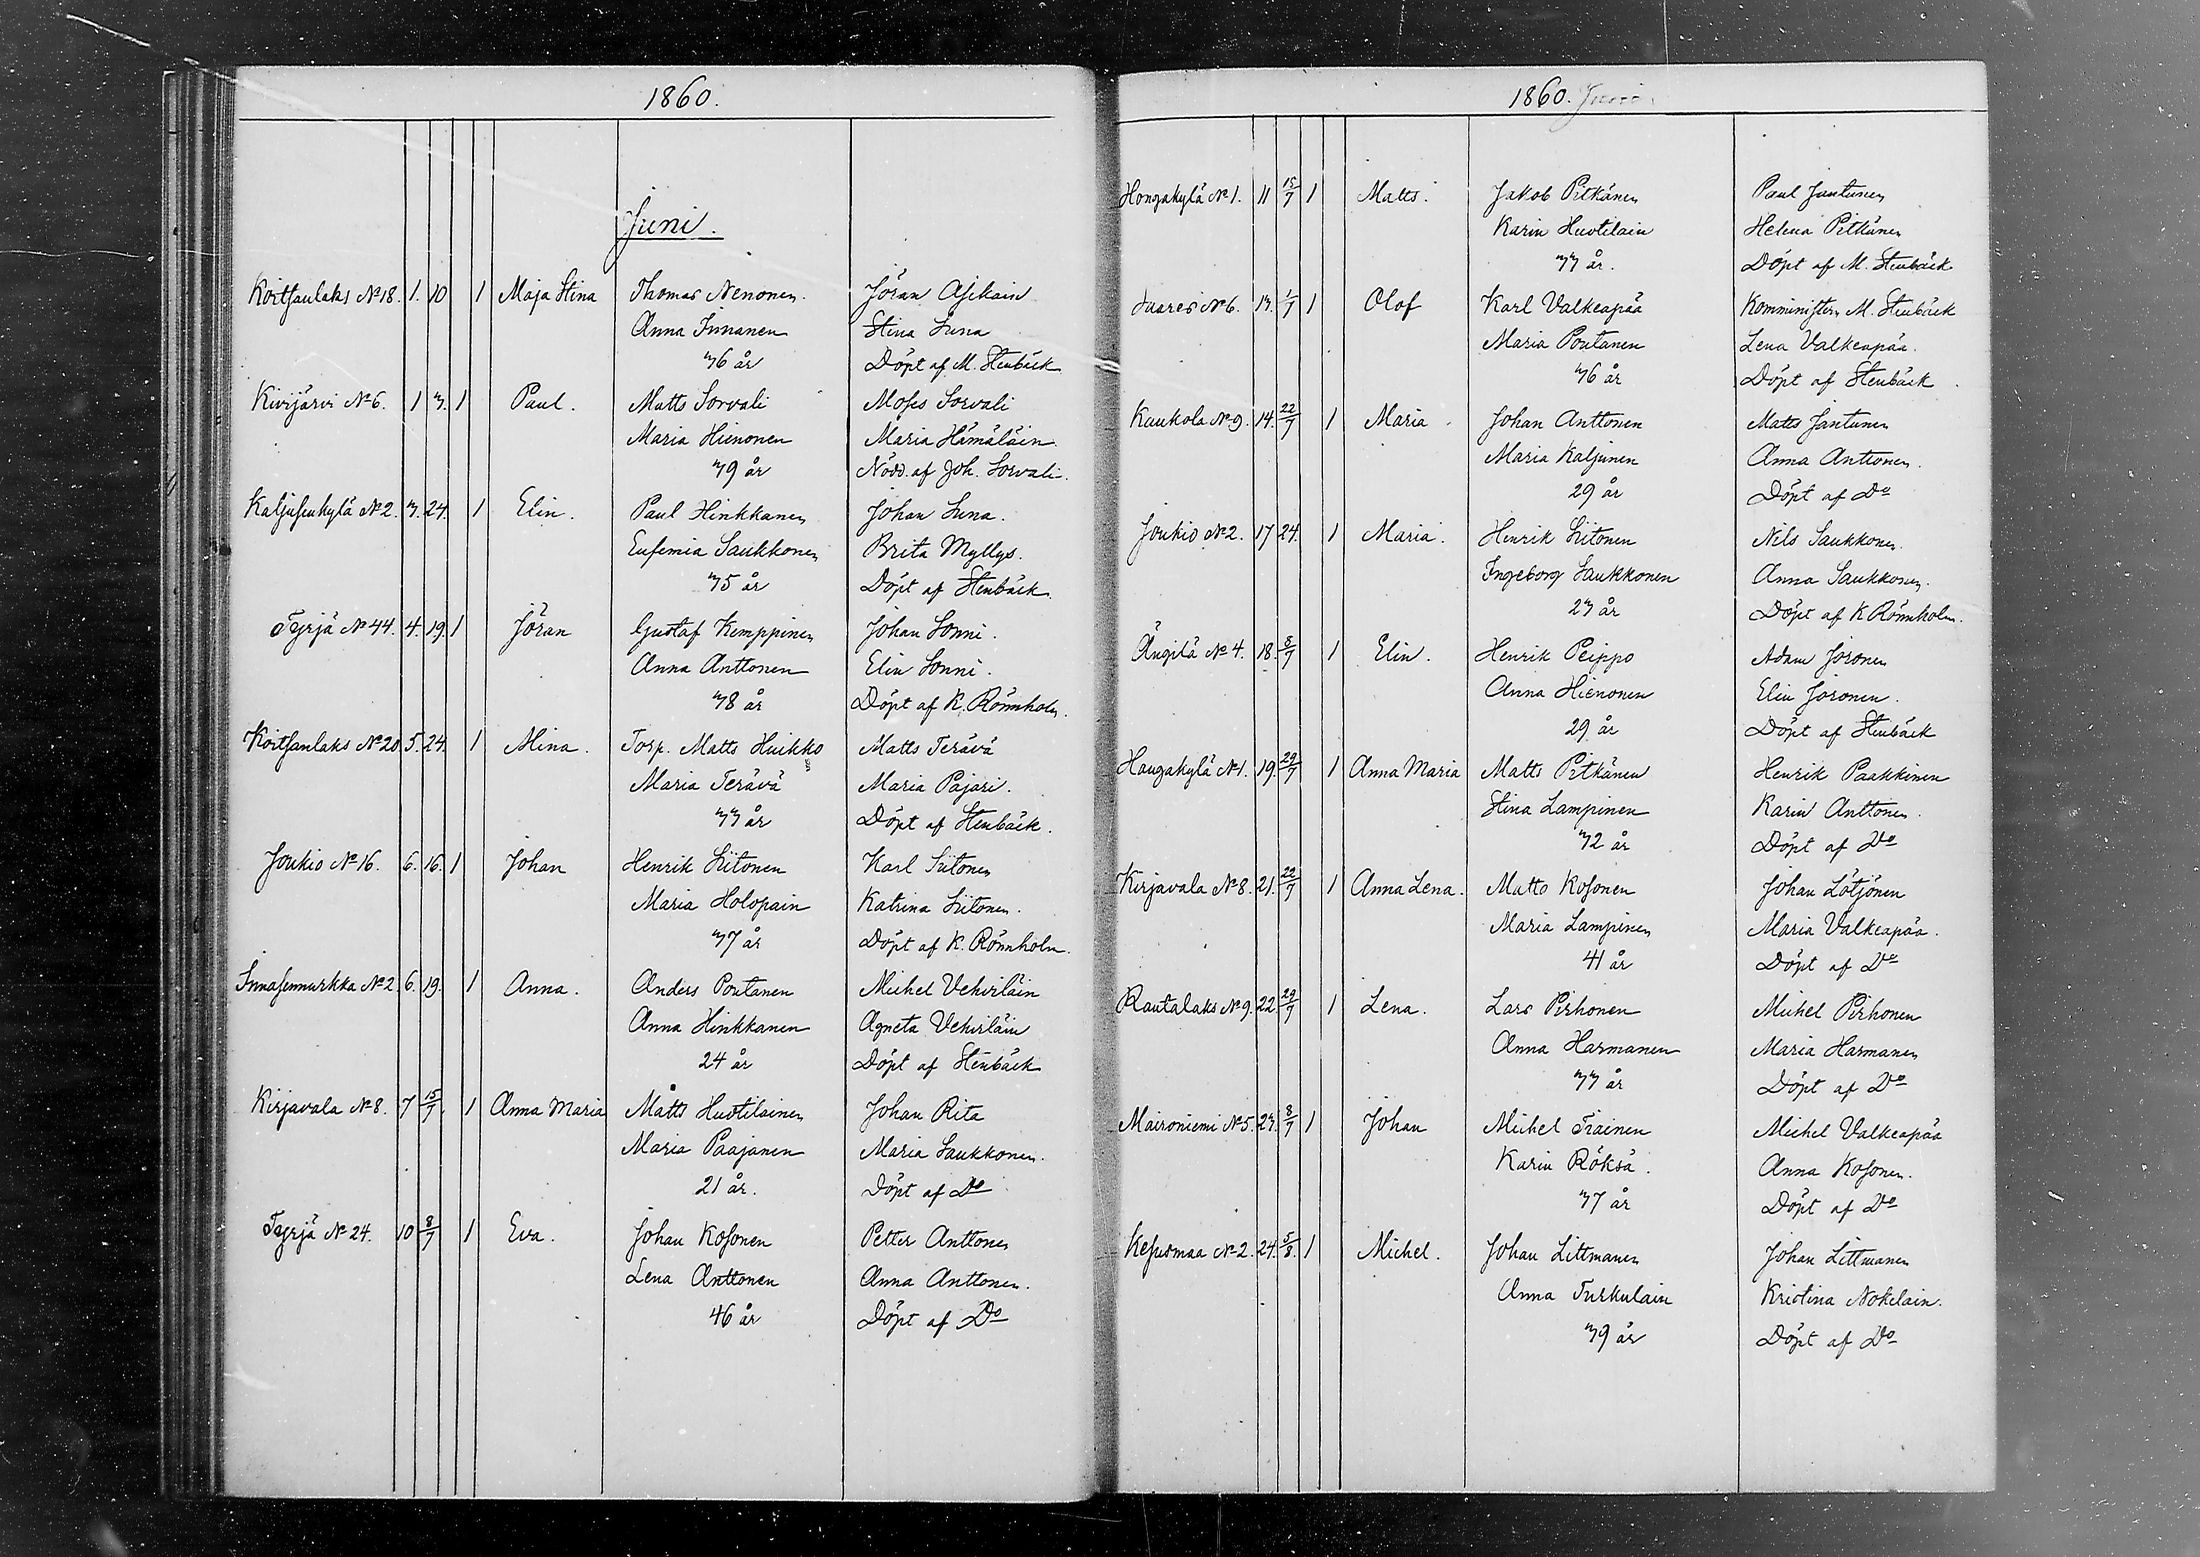 1860.
Juni.
Koitsanlaks No 18. 1. 10 1 Maja Stina Thomas Nenonen. Jöran Asikain
Anna Immanen Stina Suna
36 år Döpt af M. Stenbäck
Kivijärvi No 6. 1 3. 1 Paul. Matts Sorvali Moses Sorvali
Maria Hienonen Maria Hämäläin
39 år Nödd. af Joh. Sorvali.
Kaljusenkylä No 2. 3. 24. 1 Elin. Paul Hinkkanen Johan Suna.
Eufemia Saukkonen Brita Myllys.
35 år Döpt af Stenbäck.
Tyrjä No 44. 4. 19. 1 Jöran Gustaf Kemppinen Johan Sonni.
Anna Anttonen Elin Sonni.
38 år Döpt af K. Rönnholm.
Koitsanlaks No 20 5. 24. 1 Mina. Torp. Matts Huikko Matts Terävä
Maria Terävä Maria Pajari.
33 år Döpt af Stenbäck.
Joukio No 16. 6. 16. 1 Johan Henrik Siitonen Karl Siitonen
Maria Holopain Katrina Siitonen.
37 år Döpt af K. Rönnholm.
Innasennurkka No 2. 6. 19. 1 Anna. Anders Poutanen Michel Vehviläin
Anna Hinkkanen Agneta Vehviläin
24 år Döpt af Stenbäck
Kirjavala No 8. 7 15/7 1 Anna Maria Matts Huotilainen Johan Rita
Maria Paajanen Maria Saukkonen.
21 år. Döpt af Do
Tyrjä No 24. 10 8/7 1 Eva. Johan Kosonen Petter Anttonen
Lena Anttonen Anna Anttonen.
46 år Döpt af Do
1860. Juni.
Hongakylä No 1. 11 15/7 1 Matts. Jakob Pitkänen Paul Jantunen
Karin Huotilain Helena Pitkänen
33 år. Döpt af M. Stenbäck
No 6. 13. 1/7 1 Olof Karl Valkeapää Komministern M. Stenbäck
Maria Poutanen Lena Valkeapää.
36 år Döpt af Stenbäck
Kaukola No 9. 14. 22/7 1 Maria Johan Anttonen Matts Jantunen
Maria Kaljunen Anna Anttonen.
29 år Döpt af Do
Joukio No 2. 17 24. 1 Maria. Henrik Siitonen Nils Saukkonen.
Ingeborg Saukkonen Anna Saukkonen.
23 år Döpt af K Rönnholm.
Ängilä No 4. 18. 8/7 1 Elin. Henrik Peippo Adam Joronen
Anna Hienonen Elin Joronen.
29 år Döpt af Stenbäck
Haugakylä No 1. 19. 29/7 1 Anna Maria Matts Pitkänen Henrik Paakkinen
Stina Lampinen Karin Anttonen.
32 år Döpt af Do
Kirjavala No 8. 21. 22/7 1 Anna Lena. Matts Kosonen Johan Lötjönen
Maria Lampinen Maria Valkeapää.
41 år Döpt af Do
Rautalaks No 9. 22. 29/7 1 Lena. Lars Pirhonen Michel Pirhonen
Anna Harmanen Maria Harmanen
33 år Döpt af Do
Maironiemi No 5. 23. 8/7 1 Johan Michel Tiainen Michel Valkeapää
Karin Röksä. Anna Kosonen.
37 år Döpt af Do
Kesusmaa No 2. 24. 5/8. 1 Michel. Johan Littmanen Johan Littmanen
Anna Turkulain Kristina Nokelain.
39 år Döpt af Do